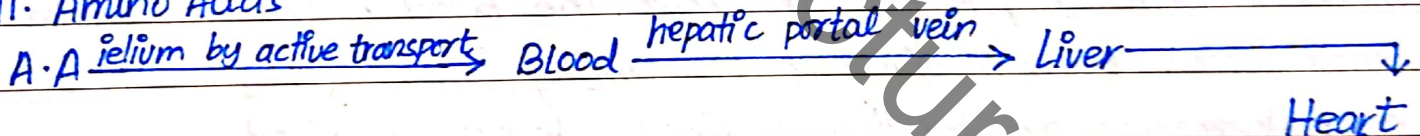 1. Amino Acids
A.A ielium by active transport → Blood hepatic portal vein → Liver
Heart